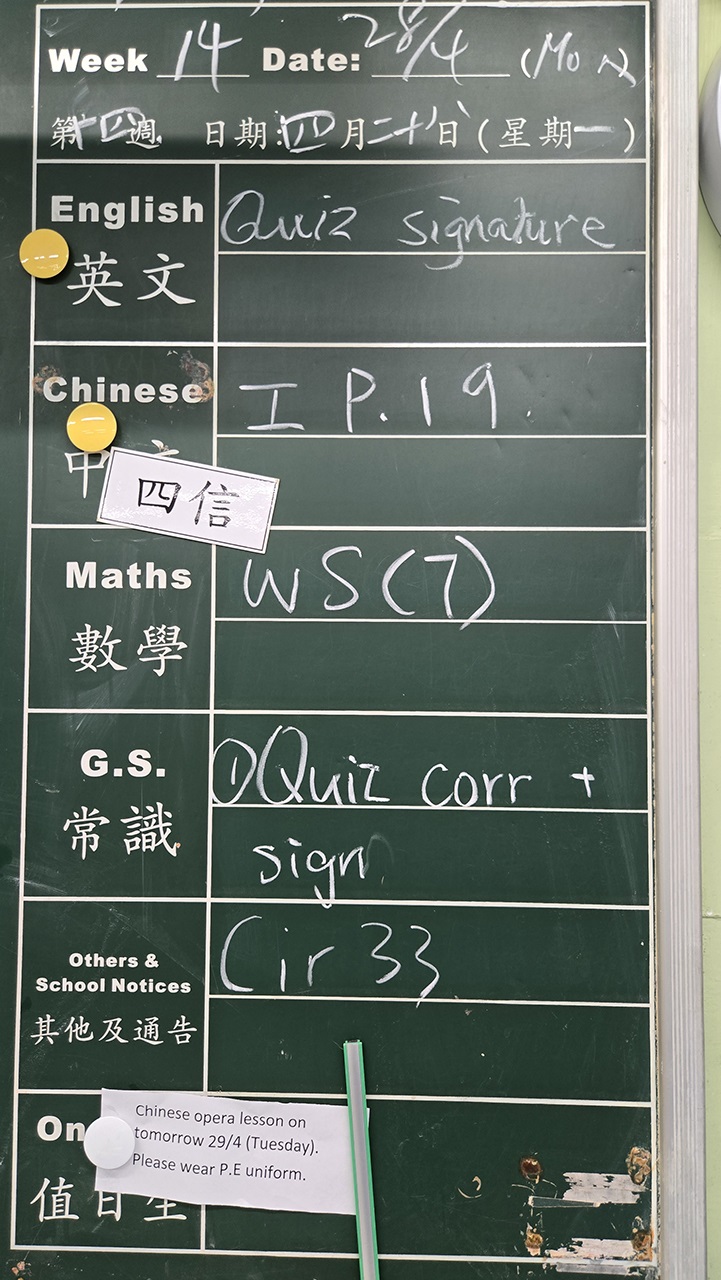 Week 14 Date: 28/4 (Mon)
第十四週 日期:四月二十八日(星期一)
English Quiz signature
英文
Chinese I P.19.
中
四信
Maths WS(7)
數學
G.S. ①Quiz corr +
常識 sign
Others & Cir 33
School Notices
其他及通告
On
Chinese opera lesson on
tomorrow 29/4 (Tuesday).
Please wear P.E uniform.
值日生